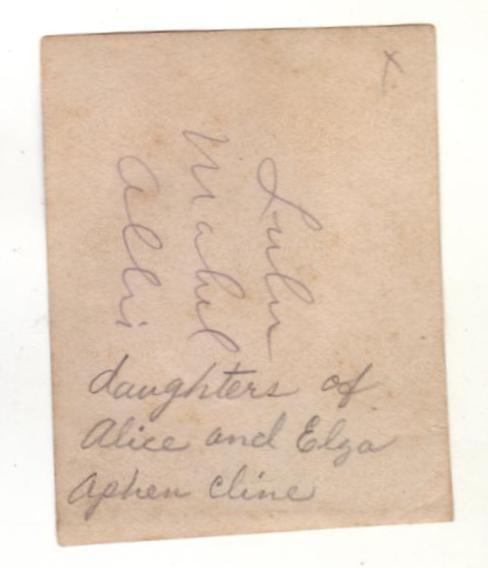 x
Lulu
Mabel
Allli
daughters of
Alice and Elza
Aphen Cline